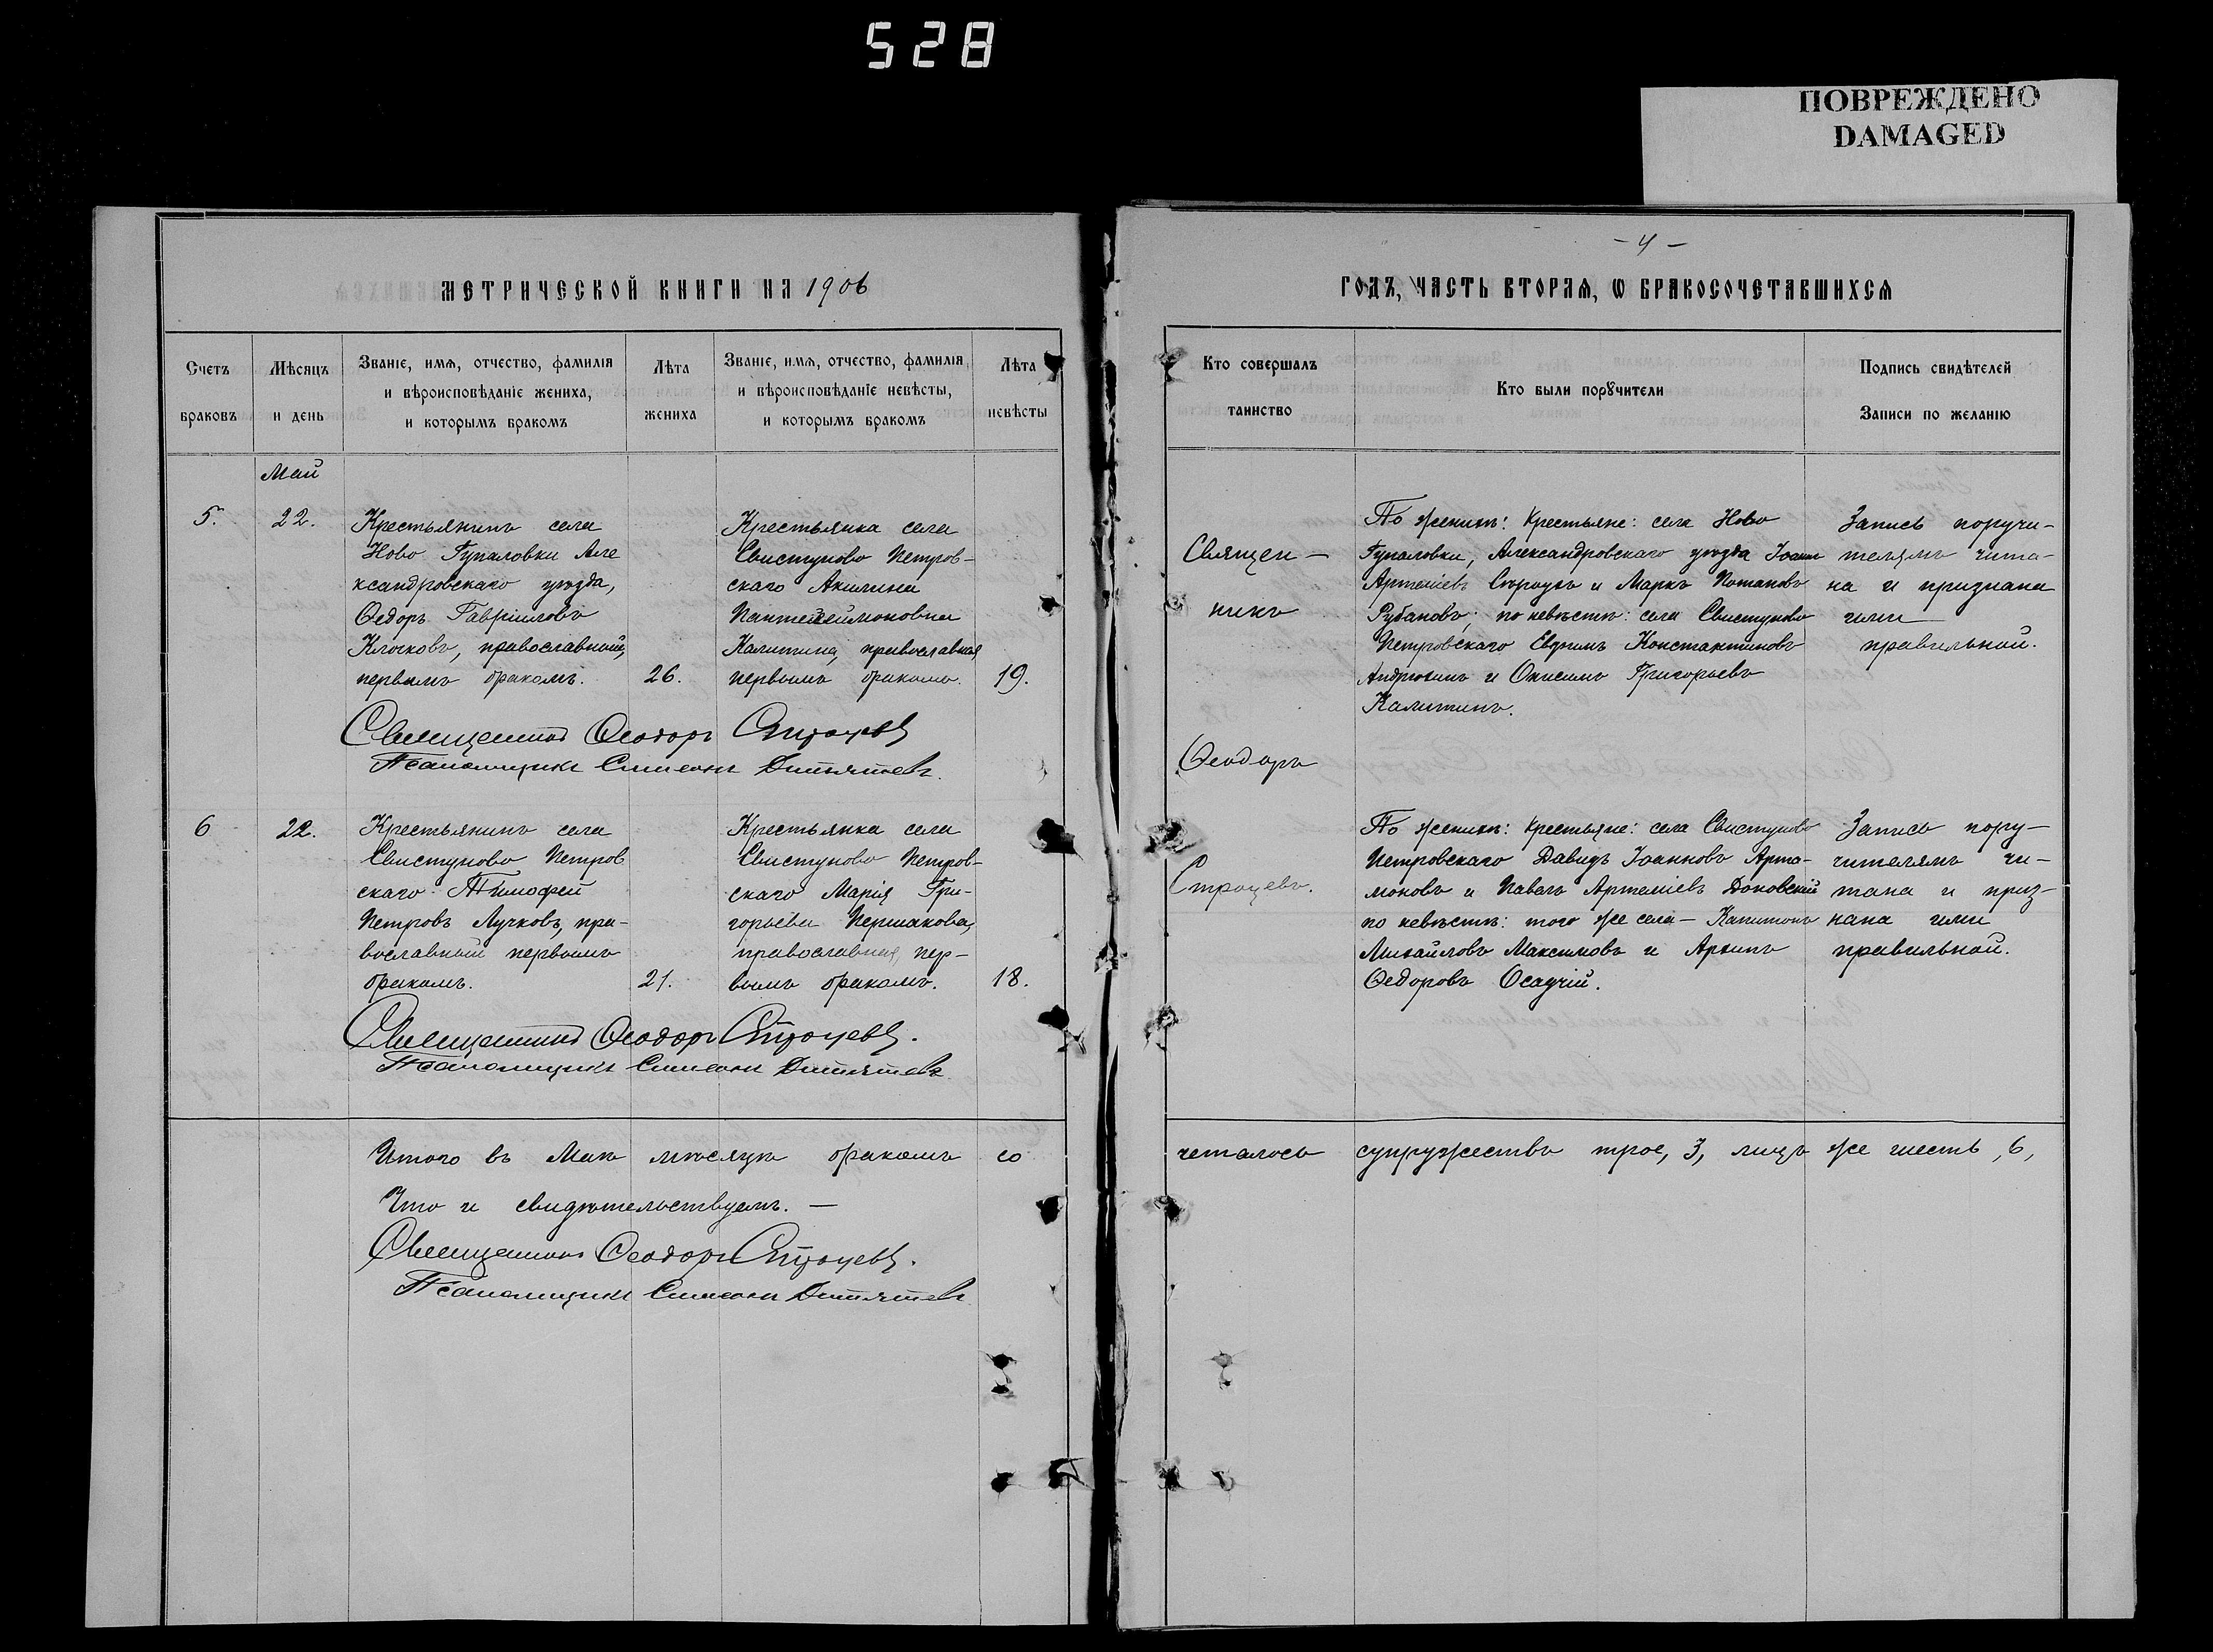 528
ПОВРЕЖДЕНО
DAMAGED
МЕТРИЧЕСКОЙ КНИГИ НА 1906
Счетъ
браковъ
Мѣсяцъ
и день
Званіе, имѧ, отчество, фамилія
и вѣроисповѣданіе жениха,
и которымъ бракомъ
Лѣта
жениха
Званіе, имѧ, отчество, фамилія
и вѣроисповѣданіе невѣсты,
и которымъ бракомъ
Лѣта
невѣсты
Май
5.
22.
Крестьянинъ села
Ново Гупаловки Але
ксандровскаго уѣзда,
Ѳедоръ Гавріиловъ
Клочковъ, православный,
первымъ бракомъ.
26.
Крестьянка села
Свистуново Петров-
скаго Акилина
Пантелеймоновна
Калитина, православная,
первымъ бракомъ.
19.
Священникъ Ѳеодоръ Строцевъ
Псаломщикъ Симеонъ Дитятевъ.
6
22.
Крестьянинъ села
Свистуново Петров
скаго Тимофей
Петровъ Лучковъ, пра-
вославный первымъ
бракомъ.
21.
Крестьянка села
Свистуново Петров-
скаго Марія Гри-
горьева Першакова,
православная, пер-
вымъ бракомъ.
18.
Священникъ Ѳеодоръ Строцевъ.
Псаломщикъ Симеонъ Дитятевъ
Итого въ Маѣ мѣсяцѣ бракомъ со
Что и свидѣтельствуемъ. —
Священникъ Ѳеодоръ Строцевъ.
Псаломщикъ Симеонъ Дитятевъ
- 4 -
ГОДЪ, ЧАСТЬ ВТОРАЯ, Ѡ БРАКОСОЧЕТАВШИХСЯ
Кто совершалъ
таинство
Кто были порꙋчители
Подпись свидѣтелей
Записи по желанію
Священ-
никъ
Ѳеодоръ
Строцевъ.
По женихѣ: крестьяне: села Ново
Гупаловки, Александровскаго уѣзда Іоаннъ
Артеміевъ и Маркъ Потаповъ
Рубановъ; по невѣстѣ: села Свистуново
Петровскаго Евфимъ Константиновъ
Андрюхинъ и Онисимъ Григорьевъ
Калитинъ.
Запись поручи-
телямъ чита-
на и признана
ими
правильной.
По женихѣ: крестьяне: села Свистуново
Петровскаго Давидъ Іоанновъ Арта-
моновъ и Павелъ Артеміевъ Доновскій
по невѣстѣ: того же села — Капитонъ
Михайловъ Максимовъ и Архипъ
Ѳедоровъ Осадчій.
Запись пору-
чителямъ чи-
тана и приз-
нана ими
правильной.
четалось супружествъ трое, 3, лицъ же шесть, 6,